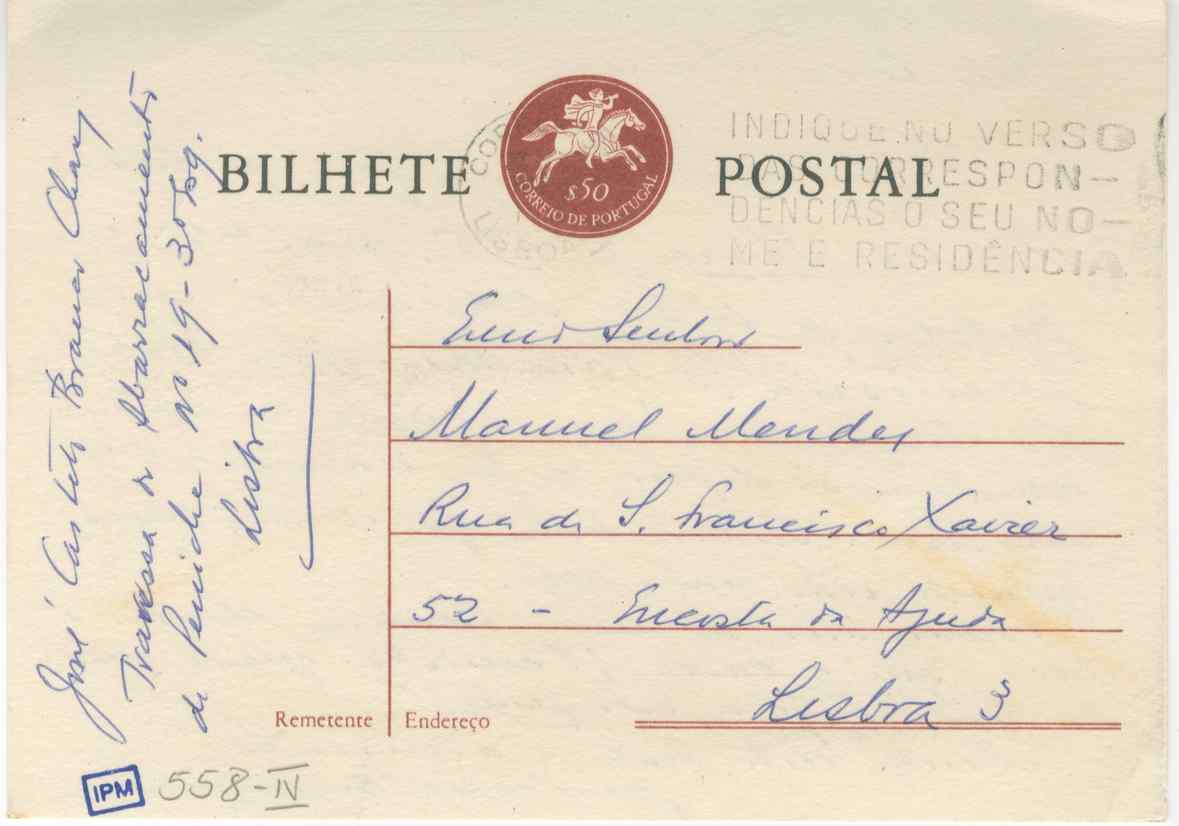 BILHETE POSTAL
$50
CORREIO DE PORTUGAL
LISBOA
INDIQUE NO VERSO
DAS CORRESPON-
DÊNCIAS O SEU NO-
ME E RESIDÊNCIA
José Castelo Branco Chaves
Travessa do Abarracamento
de Peniche nº 19-3º
Lisboa
Exmo Senhor
Manuel Mendes
Rua de S. Francisco Xavier
52 - Encosta da Ajuda
Lisboa 3
Remetente
Endereço
IPM
558-IV